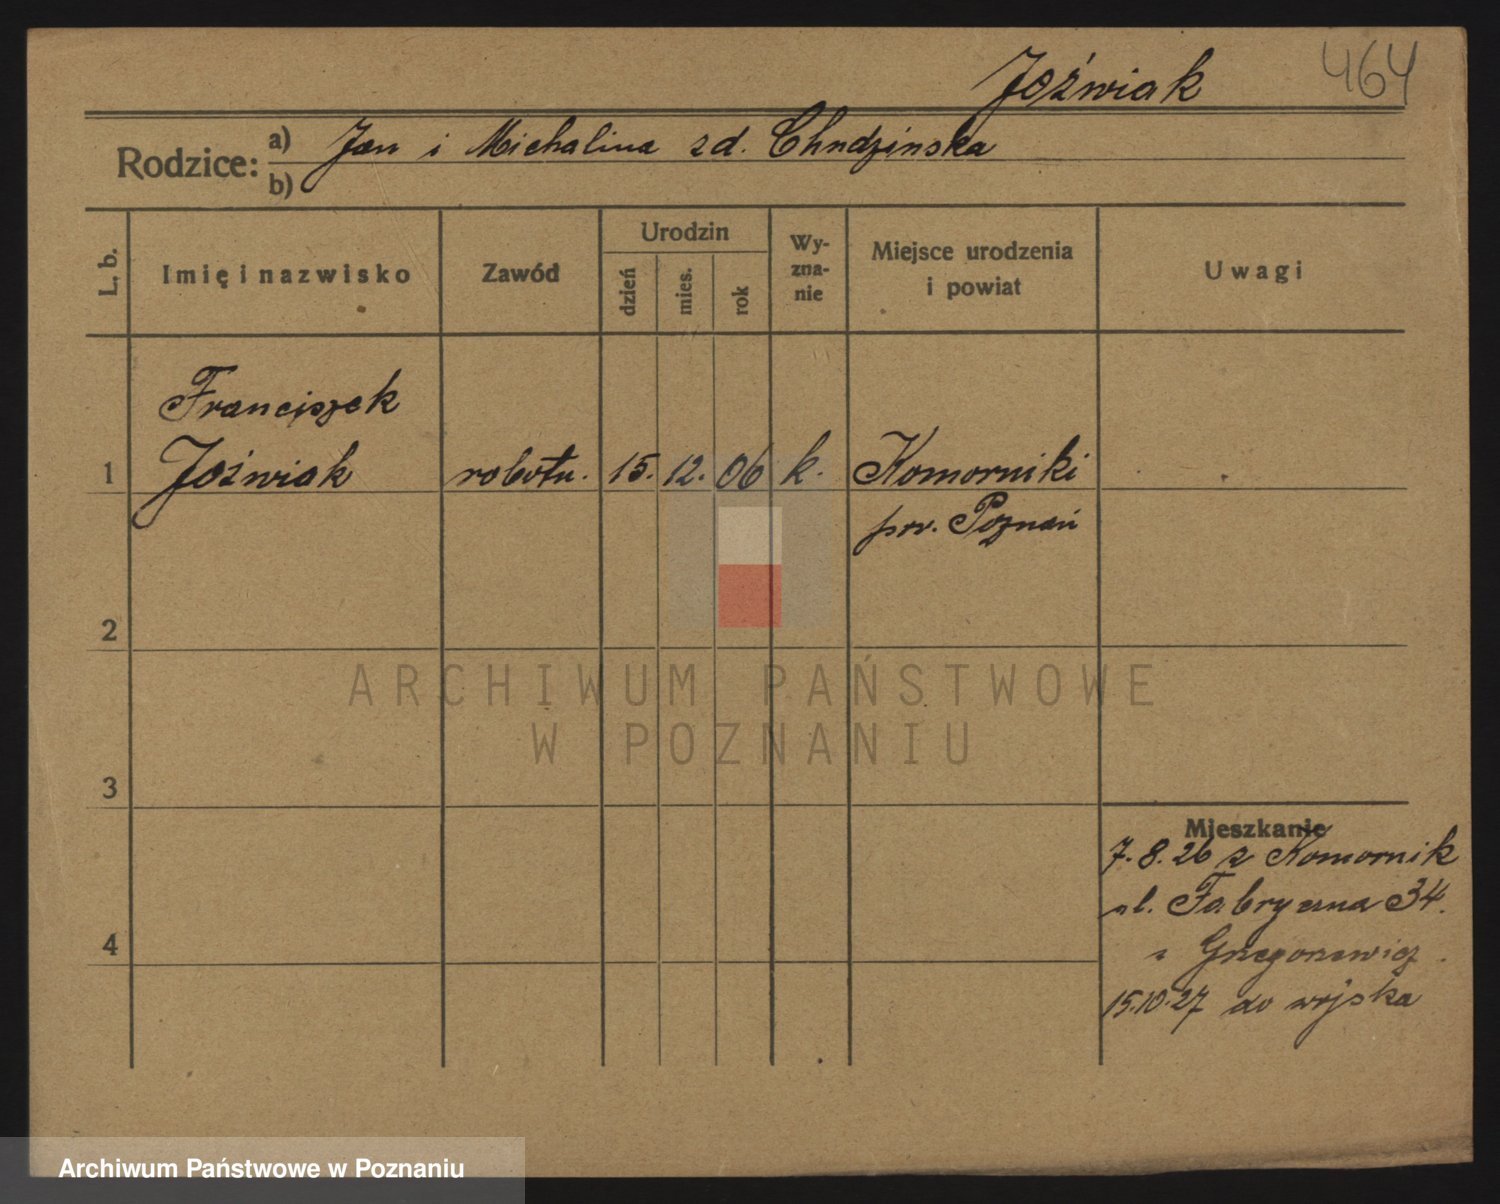 Joźwiak 464
Rodzice: a) Jan i Michalina zd. Chudzinska
b)
L. b. Imię i nazwisko Zawód Urodzin dzień mies. rok Wy-zna-nie Miejsce urodzenia i powiat Uwagi
Franciszek
1 Joźwiak robotn. 15. 12. 06 k. Komorniki
pow. Poznań
2
3
4
Mieszkanie
7.8.26 z Komornik
ul. Fabryczna 34.
Grzegorzewicz
15.10.27 do wojska
ARCHIWUM PAŃSTWOWE
W POZNANIU
Archiwum Państwowe w Poznaniu